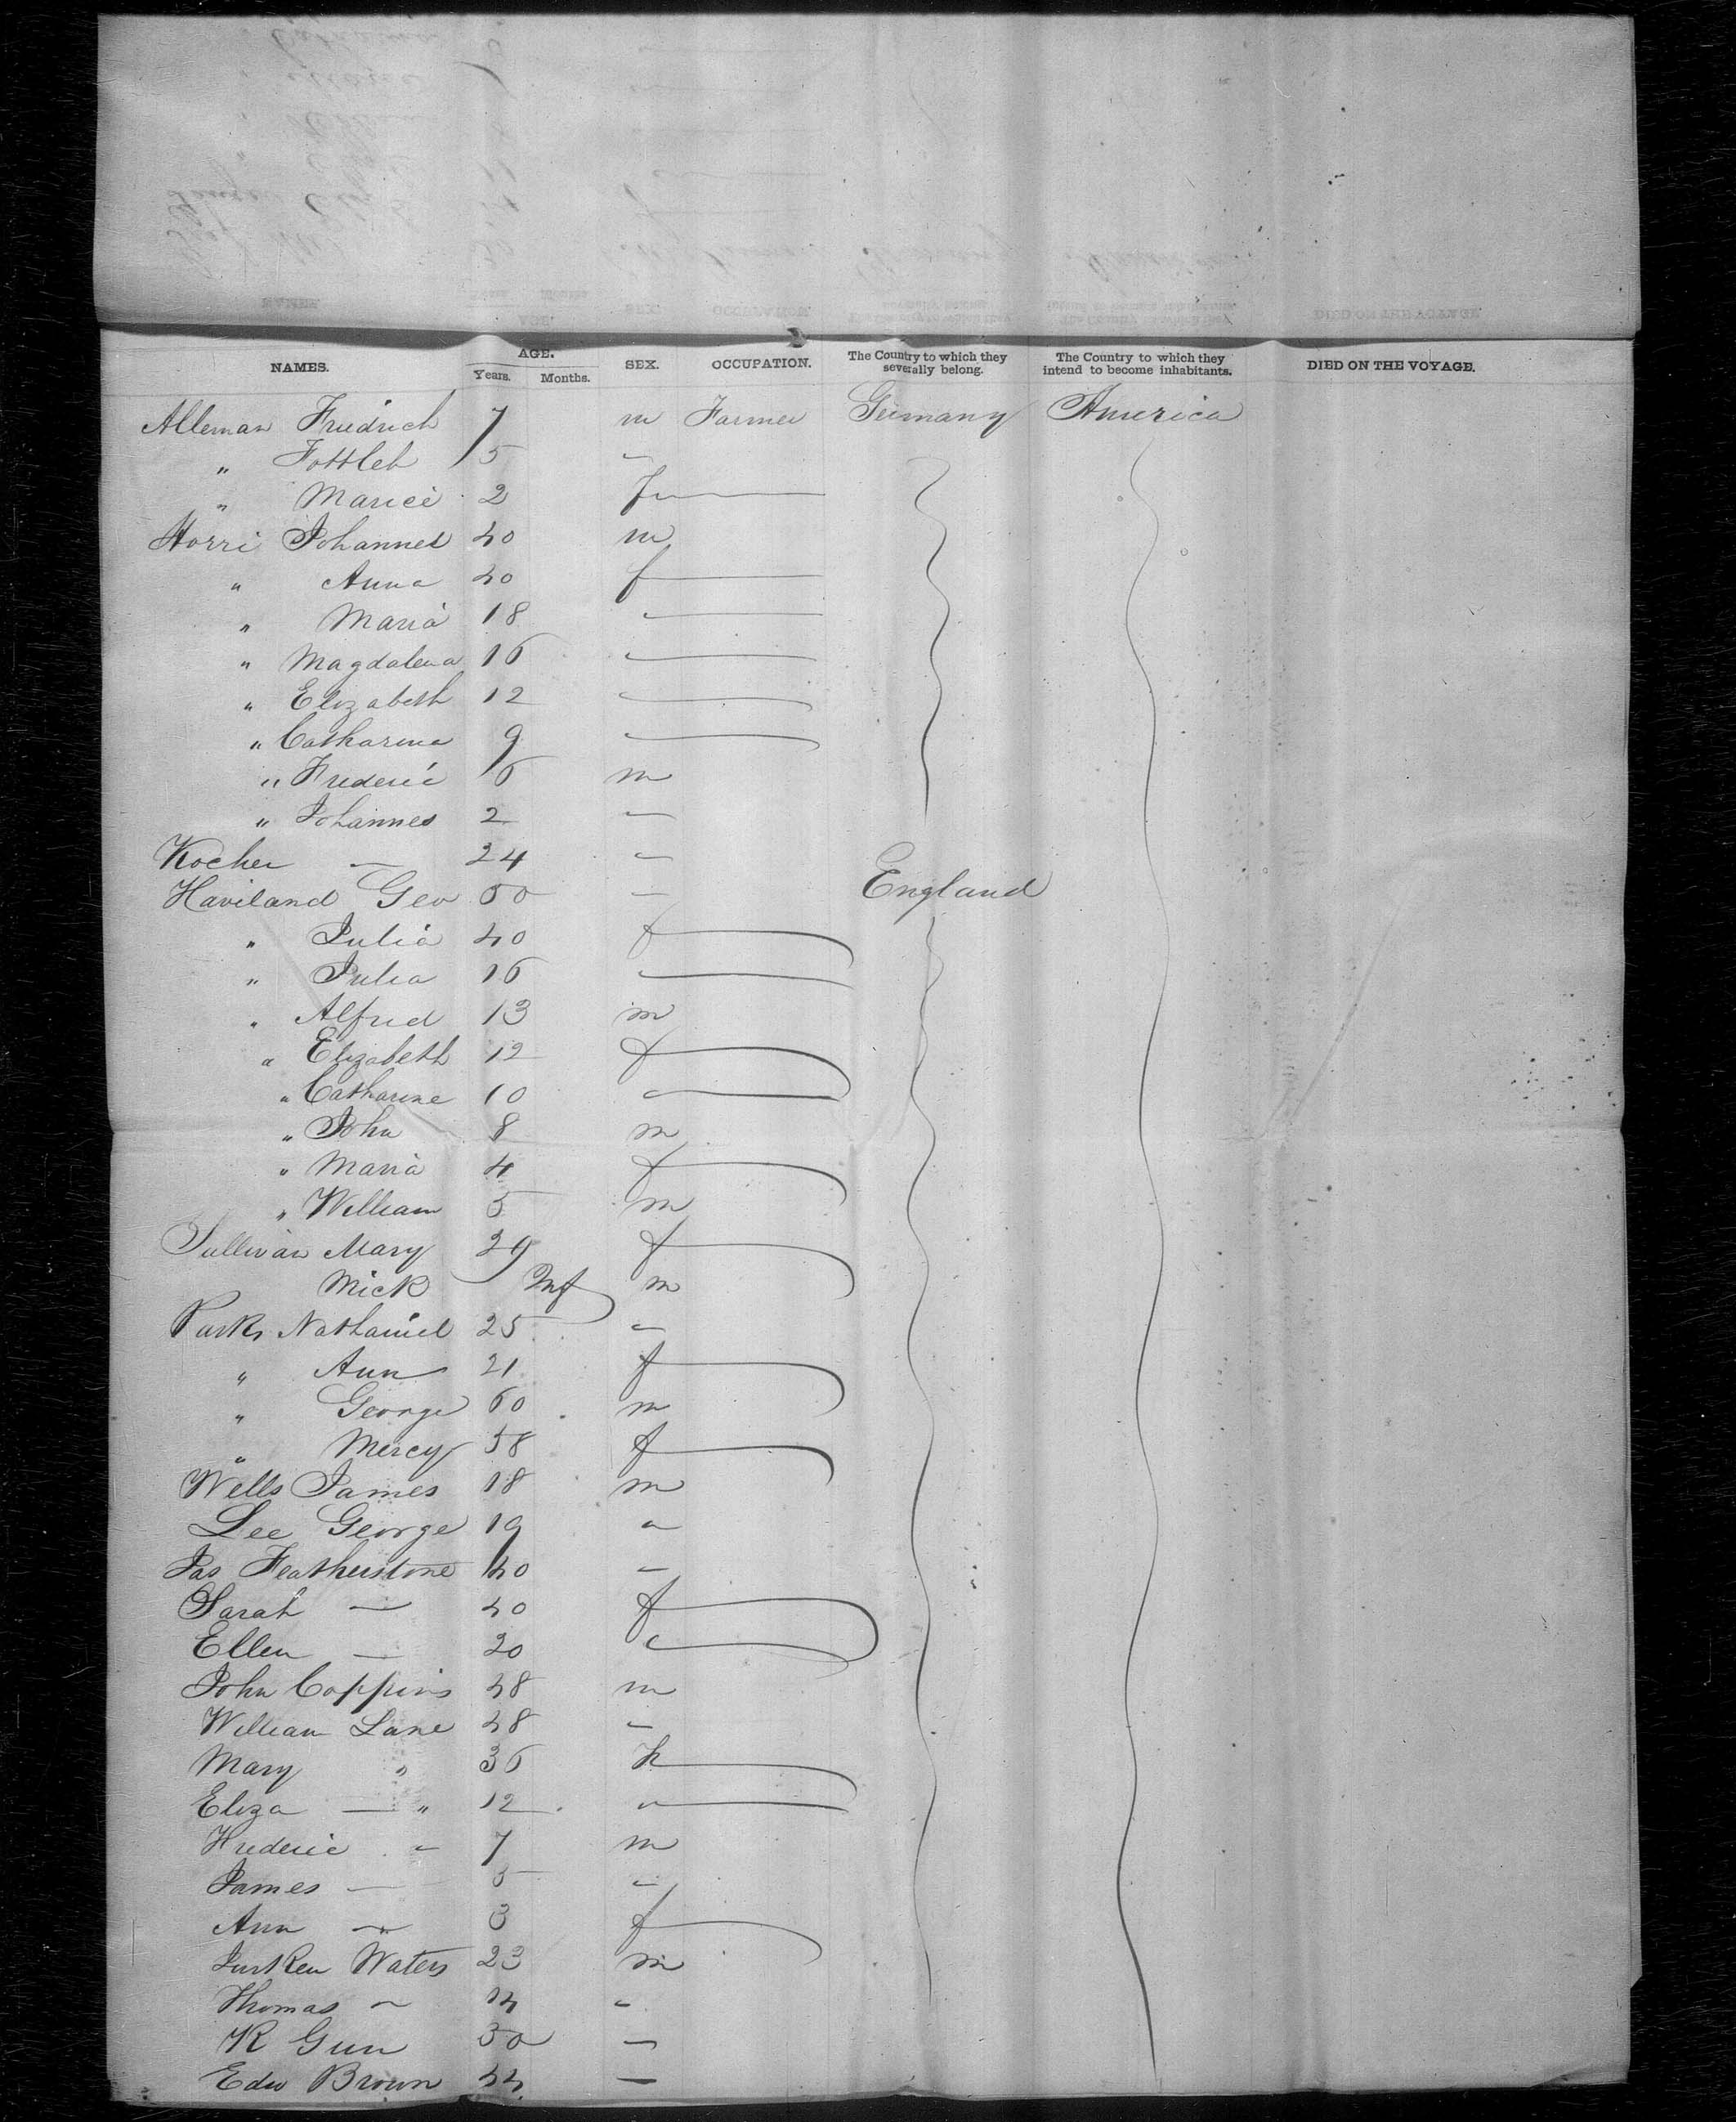 NAMES. AGE. Years. Months. SEX. OCCUPATION. The Country to which they severally belong. The Country to which they intend to become inhabitants. DIED ON THE VOYAGE.
Alleman Friedrich 7 m Farmer Germany America
" Fottleb 5 "
" Marice 2 f
Horri Johannes 40 m
" Anna 40 f
" Maria 18 "
" Magdalena 16 "
" Elizabeth 12 "
" Catharina 9 "
" Frederic 6 m
" Johannes 2 —
Kocher — 24 "
Haviland Geo 50 — England
" Julia 40 f
" Julia 16 "
" Alfred 13 m
" Elizabeth 12 f
" Catharine 10 "
" John 8 m
" Maria 4 f
" William 5 m
Sullivan Mary 29 f
Mick Inf m
Parks Nathaniel 25 "
" Ann 21 f
" George 60 m
" Mercy 58 f
Wells James 18 m
Lee George 19 "
Jas Featherstone 40 "
Sarah — 40 f
Ellen — 20 "
John Coppins 48 m
William Lane 48 "
Mary " 36 f
Eliza — " 12 "
Frederic " 7 m
James — 5 "
Ann — 3 f
Waters 23 m
Thomas " 14 "
K Gun 50 —
Edw Brown 44 —